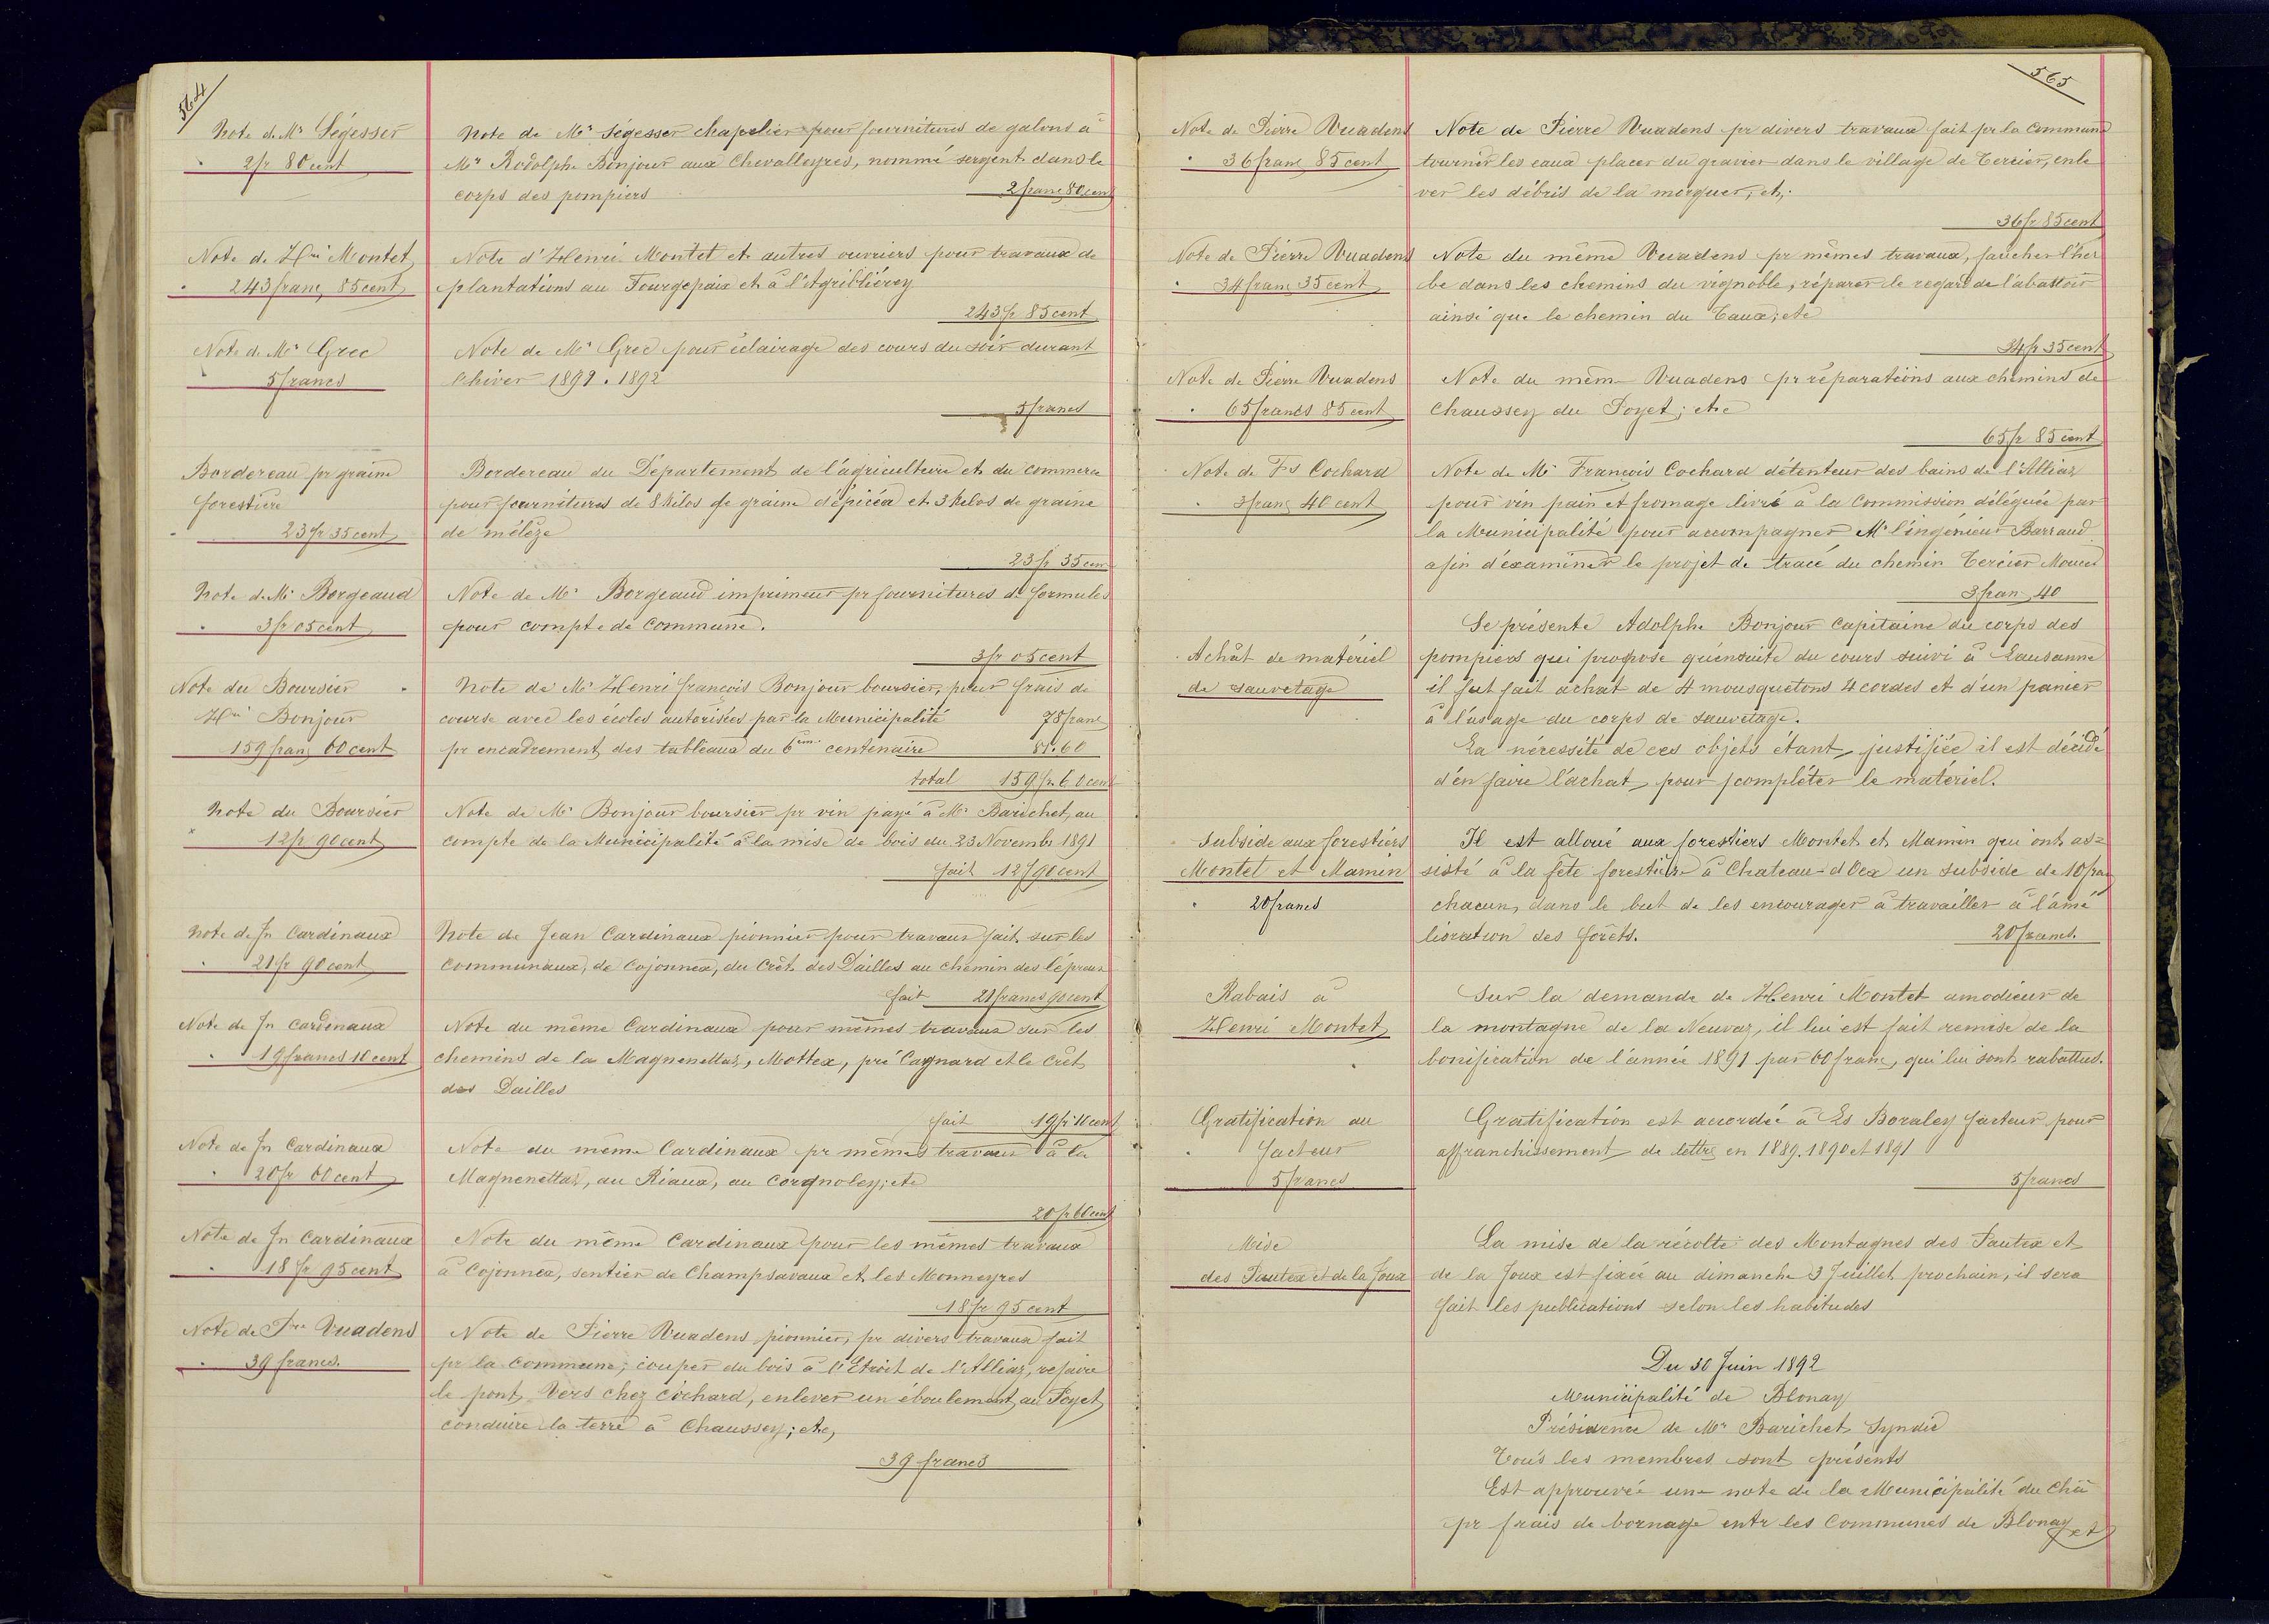 564
Note de Mr Ségesser
" 2 fr 80 cent
Note de Mr Ségesser chapelier pour fournitures de galons à
Mr Rodolphe Bonjour aux Chevalleyres, nommé sergent dans le
corps des pompiers 2 franc 80 cent
Note de Hri Montet
" 243 franc, 85 cent
Note d'Henri Montet et autres ouvriers pour travaux de
plantations au Fourgepaix et à l'Agriblièrey
243 fr 85 cent
Note de Mr Grec
" 5 francs
Note de Mr Grec pour éclairage des cours du soir durant
l'hiver 1891. 1892
5 francs
Bordereau pr graine
forestière
" 23 fr 35 cent
Bordereau du Département de l'agriculture et du commerce
pour fournitures de 8 kilos de graine d'épicéa et 3 kilos de graine
de mélèze
23 fr 35 cen
Note de Mr Borgeaud
" 3 fr 05 cent
Note de Mr Borgeaud imprimeur pr fournitures de formules
pour compte de Commune.
3 fr 05 cent
Note du Boursier
Hri Bonjour
159 franc 60 cent
Note de Mr Henri françois Bonjour boursier, pour frais de
course avec les écoles autorisées par la Municipalité 78 franc
pr encadrement des tableaux du 6em centenaire 81.60
total 159 fr 60 cent
Note du Boursier
" 12 fr 90 cent
Note de Mr Bonjour boursier pr vin payé à Mr Barichet, au
compte de la Municipalité à la mise de bois du 23 Novembe 1891
fait 12 f 90 cent
Note de Jn Cardinaux
" 21 fr 90 cent
Note de Jean Cardinaux pionnier pour travaux fait sur les
Communaux, de Cojonnex, du Crêt des Dailles au chemin des lépreux
fait 21 francs 90 cent
Note de Jn Cardinaux
" 19 francs 10 cent
Note du même Cardinaux pour mêmes travaux sur les
chemins de la Magnenettaz, Mottex, pré Cagnard et le Crêt
des Dailles
fait 19 fr 10 cent
Note de Jn Cardinaux
" 20 fr 60 cent
Note du même Cardinaux pr mêmes travaux à la
Magnenettaz, au Riaux, au Corgnoley; etc
20 fr 60 cent
Note de Jn Cardinaux
" 18 fr 95 cent
Note du même Cardinaux pour les mêmes travaux
à Cojonnex, sentier de Champsavaux et les Monneyres
18 fr 95 cent
Note de Pre Vuadens
" 39 francs.
Note de Pierre Vuadens pionnier, pr divers travaux fait
pr la Commune; couper du bois à l'Etroit de l'Alliaz, refaire
le pont Vers chez Cochard, enlever un éboulement au Foyet
conduire la terre à Chaussey; etc,
39 francs
565
Note de Pierre Vuadens
" 36 franc 85 cent
Note de Pierre Vuadens pr divers travaux fait pr la Commune
tourner les eaux placer du gravier dans le village de Tercier, enle
ver les débris de la morgue, etc.
36 fr 85 cent
Note de Pierre Vuadens
" 34 franc 35 cent
Note du même Vuadens pr mêmes travaux, faucher l'her
be dans les chemins du vignoble, réparer le regard de l'abattoir
ainsi que le chemin du Taux; etc
34 fr 35 cent
Note de Pierre Vuadens
" 65 francs 85 cent
Note du même Vuadens pr réparations aux chemins de
Chaussey du Foyet; etc
65 fr 85 cent
Note de Fs Cochard
" 3 franc 40 cent
Note de Mr François Cochard détenteur des bains de l'Alliaz
pour vin pain et fromage livré à la Commission déléguée par
la Municipalité pour accompagner Mr l'ingénieur Barraud
afin d'examiner le projet de tracé du chemin Tercier Mourex
3 fran 40
Achât de matériel
de sauvetage
Se présente Adolphe Bonjour Capitaine du corps des
pompiers qui propose qu'ensuite du cours suivi à Lausanne
il fut fait achat de 4 mousquetons 4 cordes et d'un panier
à l'usage du corps de sauvetage.
La nécessité de ces objets étant justifiée il est décidé
d'en faire l'achat pour compléter le matériel.
Subside aux forestiers
Montet et Mamin
" 20 francs
Il est alloué aux forestiers Montet et Mamin qui ont as=
sisté à la fête forestière à Chateau-d'Oex un subside de 10 fra
chacun, dans le but de les encourager à travailler à l'amé
lioration des forêts. 20 francs.
Rabais à
Henri Montet
Sur la demande de Henri Montet amodieur de
la montagne de la Neuvaz, il lui est fait remise de la
bonification de l'année 1891 par 60 franc, qui lui sont rabattus.
Gratification au
facteur
5 francs
Gratification est accordée à Es Boraley facteur pour
affranchissement de lettres en 1889. 1890 et 1891
5 francs
Mise
des Pautex et de la Joux
La mise de la récolte des Montagnes des Pautex et
de la Joux est fixée au dimanche 3 Juillet prochain, il sera
fait les publications selon les habitudes
Du 30 Juin 1892
Municipalité de Blonay
Présidence de Mr Barichet Syndic
Tous les membres sont présents
Est approuvée une note de la Municipalité du Châ
pr frais de bornage entre les Communes de Blonay et